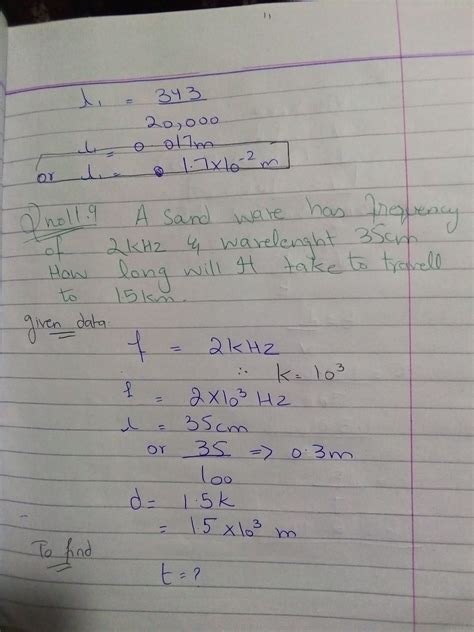 λ₁ = 343
20,000
λ₁ = 0.017m
or λ₁ = 1.7x10⁻² m
Q no 11.9 A Sand wave has frequency
of 2kHz & wavelenght 35cm
How long will It take to travell
to 1.5km.
given data
f = 2kHz
∴ k = 10³
f = 2x10³ Hz
λ = 35cm
or 35 => 0.3m
100
d = 1.5k
= 1.5 x10³ m
To find
t = ?